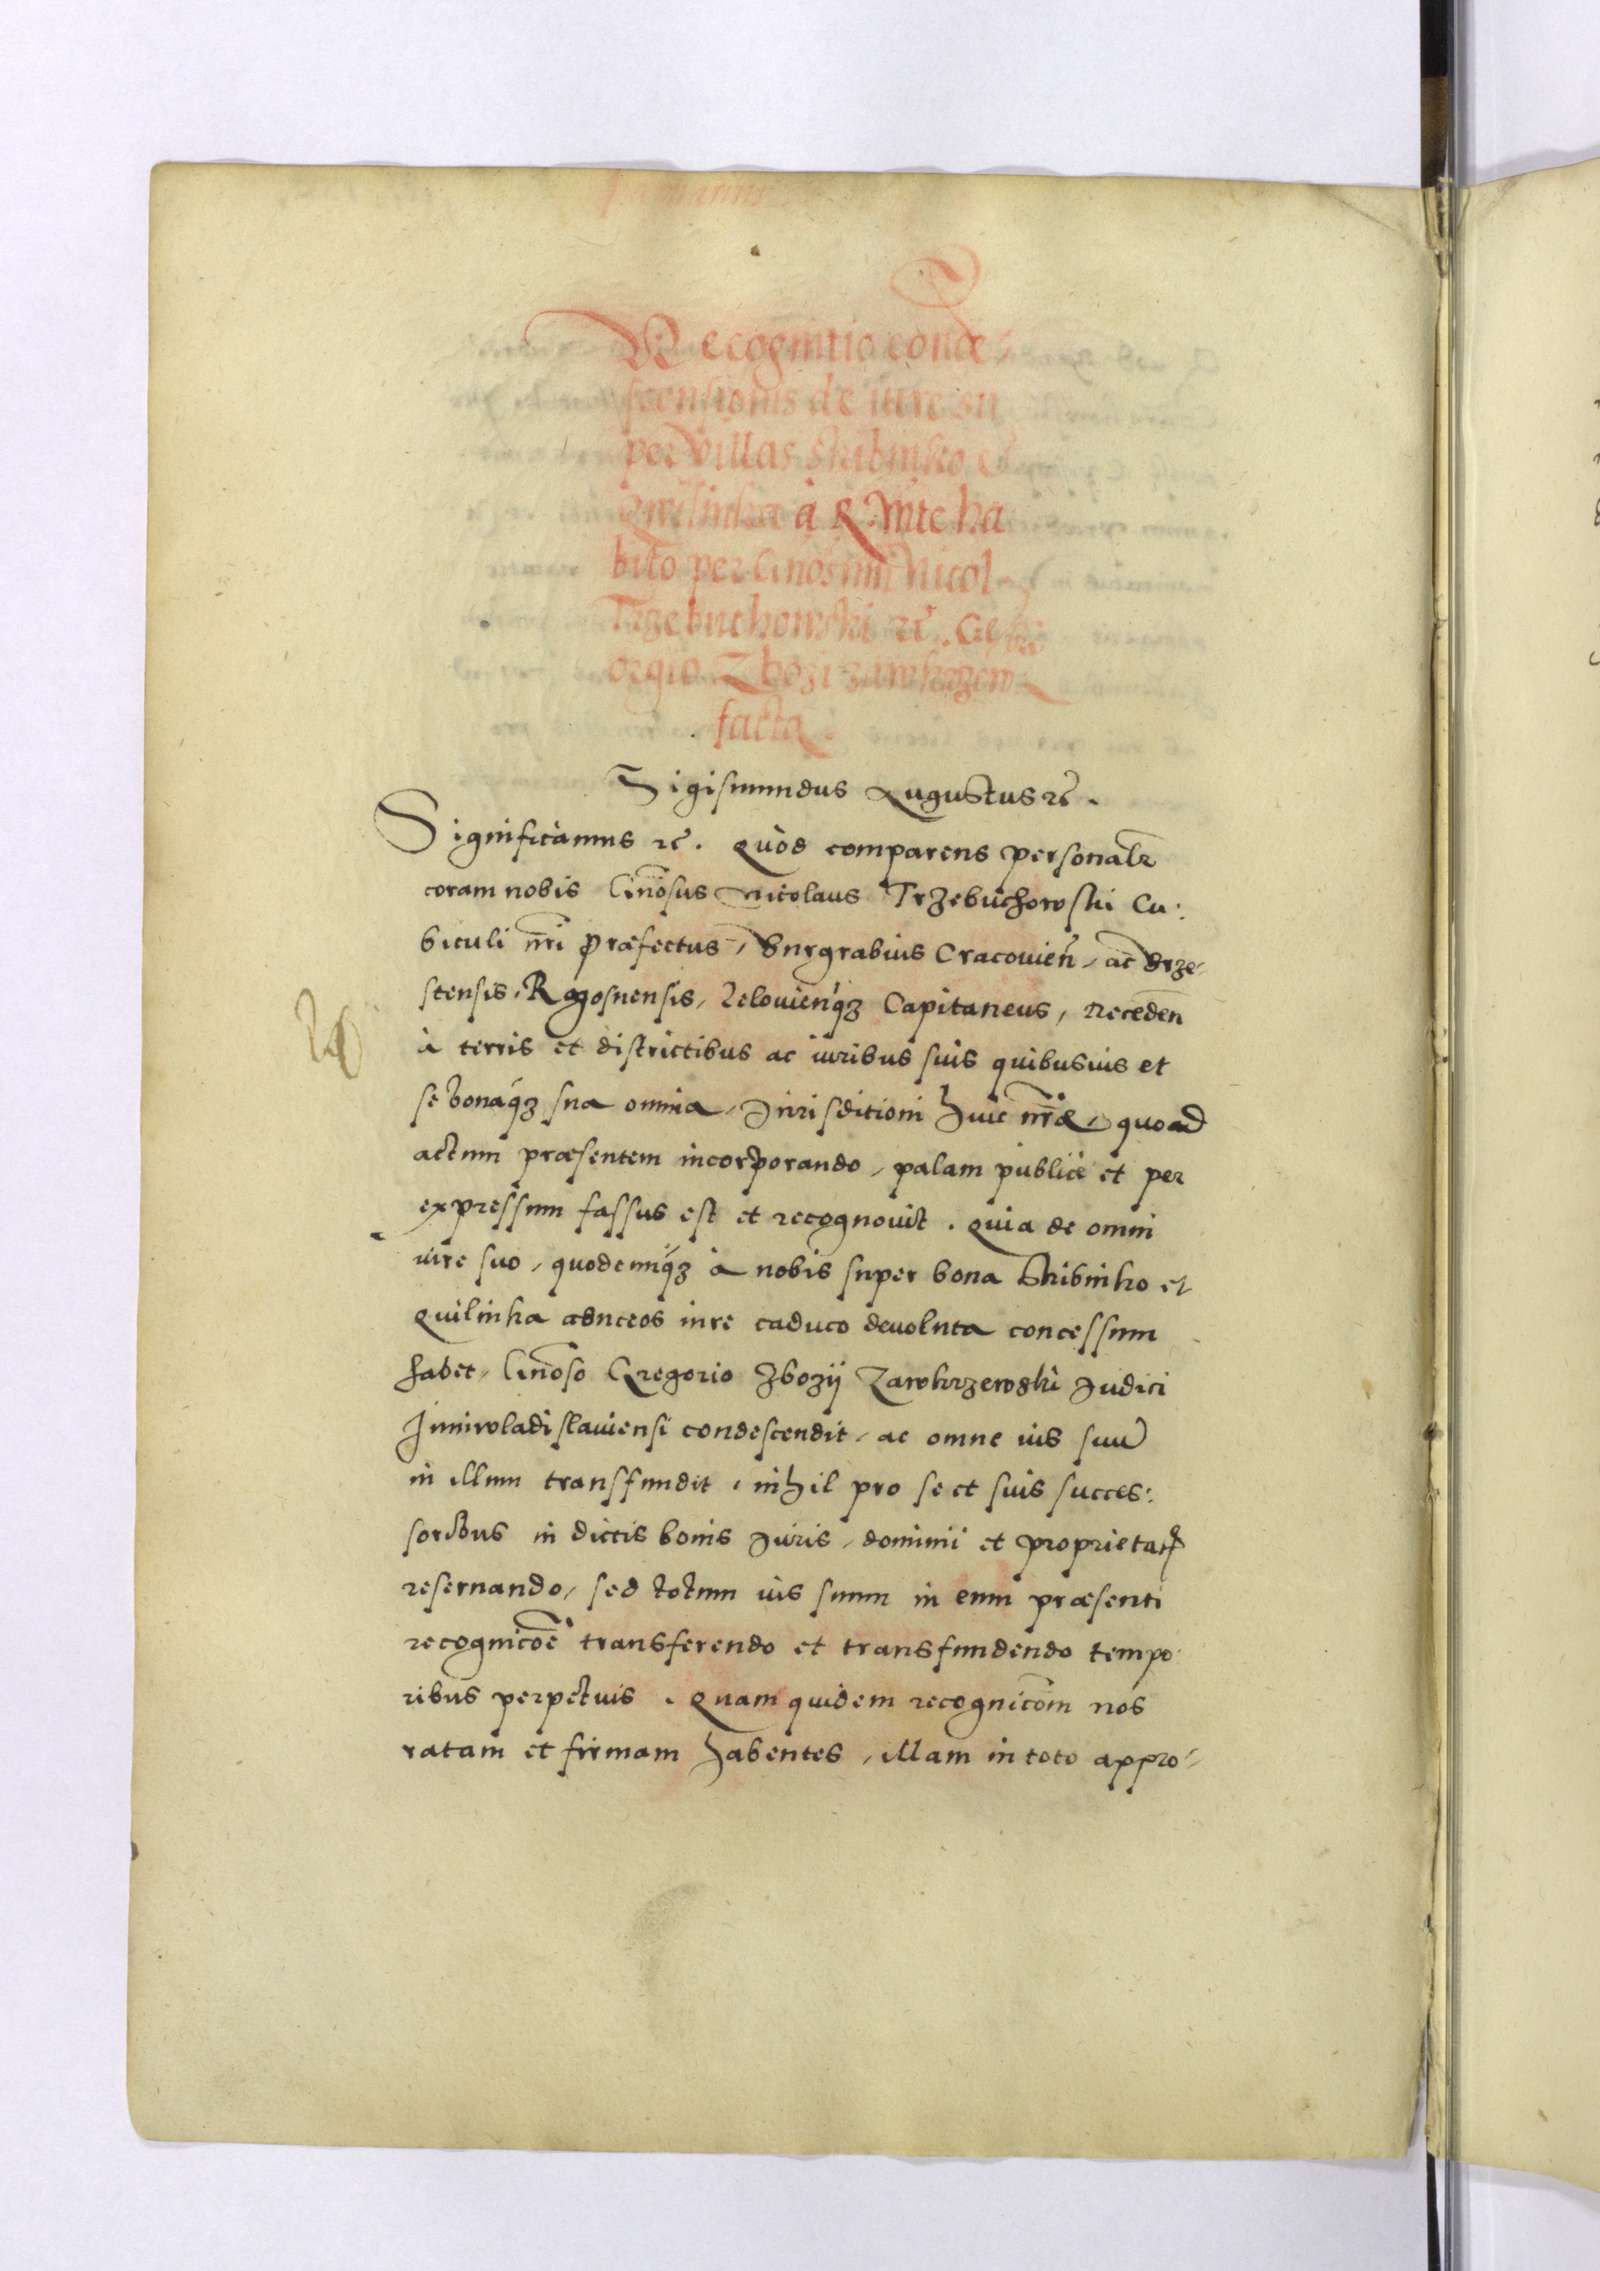 Recognitio conde
scensionis de iure su
per villas Skibinko et
Qwilinka à R. Mte ha
bito per Gnosum Nicol
Trzebuchowski rc̃. Ge
orgio Zbozi zawkrzew
facta
Sigismundus Augustus rc̃.
Significamus rc̃. Quòd comparens personalr̃
coram nobis Gñosus Nicolaus Trzebuchowski Cu:
biculi nr̃i Præfectus, Burgrabius Cracouieñ, ac̃ Brze,
stensis, Rogosnensis, Zelouieñq3 Capitaneus, Receden̄
à terris et districtibus ac iuribus suis quibusuis et
se bonaq́3 sua omnia, Jurisditioni huic nr̃æ, quoad
actum præsentem incorporando, palam publicè et per
expressum fassus est et recognouit. Quia de omni
iure suo, quodcunq́3 à nobis super bona Skibinko et
Quilinka adnceos iure caduco deuoluta concessum
habet, Gñoso Gregorio Zbozij Zawkrzewski Judici
Juniwladislauiensi condescendit, ac omne ius suu̅
in illum transfundit, nihil pro se et suis succes:
soribus in dictis bonis Juris, dominii et proprietatꝭ
reseruando, sed totum ius suum in eum præsenti
recognicõe transferendo et transfundendo tempo
ribus perpetuis. Quam quidem recognicõm nos
ratam et firmam habentes, illam in toto appro-